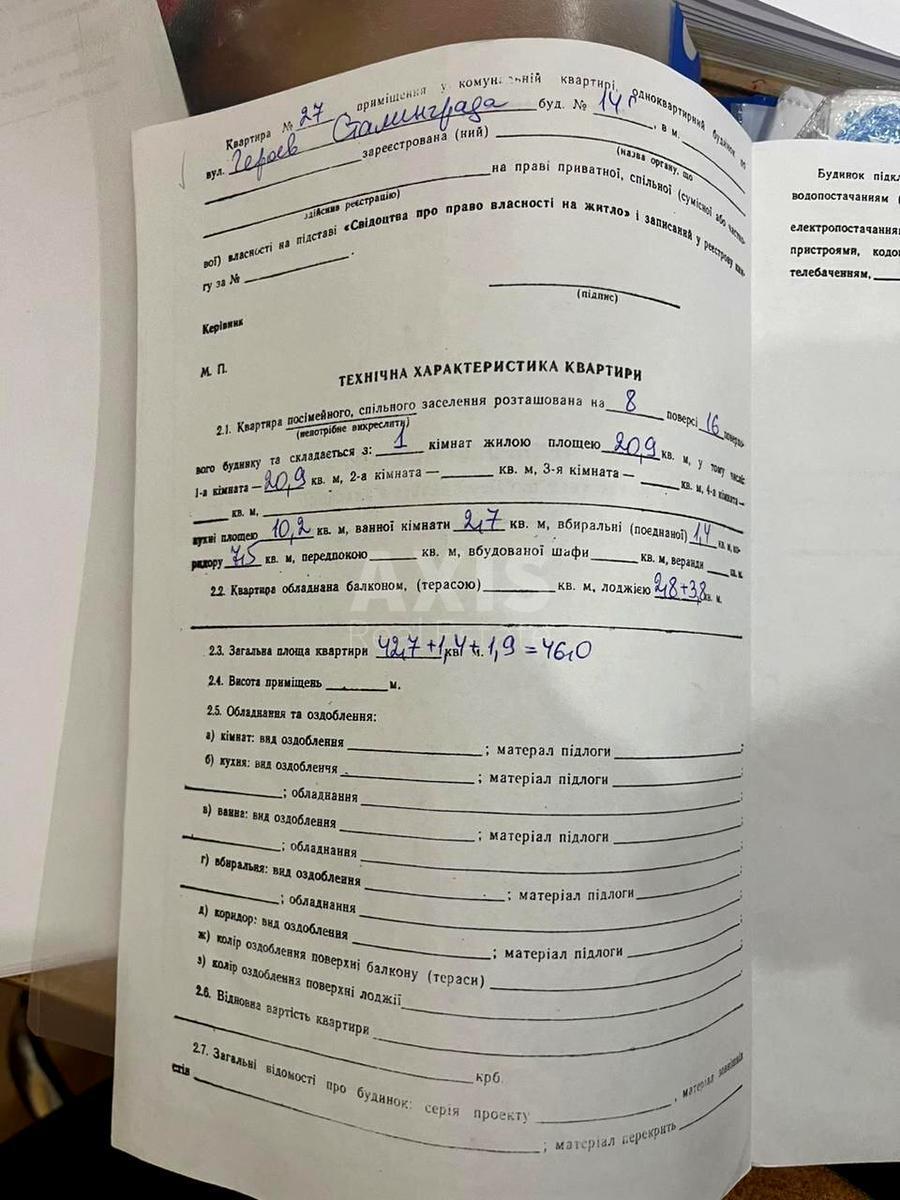 Квартира № 27 приміщення у комунальній квартирі, одноквартирний будинок по
вул. Героев Сталинграда буд. № 14, в м.
зареєстрована (ний)
(назва органу, що
здійснив реєстрацію)
на праві приватної, спільної (сумісної або частко-
вої) власності на підставі «Свідоцтва про право власності на житло» і записаний у реєстрову кни-
гу за № .
(підпис)
Керівник
М. П.
ТЕХНІЧНА ХАРАКТЕРИСТИКА КВАРТИРИ
2.1. Квартира посімейного, спільного заселення розташована на 8 поверсі 16 поверхо-
(непотрібне викреслити)
вого будинку та складається з: 1 кімнат жилою площею 20,9 кв. м, у тому числі:
1-а кімната — 20,9 кв. м, 2-а кімната — кв. м, 3-я кімната — кв. м, 4-а кімната —
кв. м,
кухні площею 10,2 кв. м, ванної кімнати 2,7 кв. м, вбиральні (поєднаної) 1,4 кв. м, ко-
ридору 7,5 кв. м, передпокою кв. м, вбудованої шафи кв. м, веранди кв. м.
2.2. Квартира обладнана балконом, (терасою) кв. м, лоджією 2,8+3,8 кв. м.
AXIS
2.3. Загальна площа квартири 42,7+1,4+1,9=46,0 кв. м.
2.4. Висота приміщень м.
2.5. Обладнання та оздоблення:
а) кімнат: вид оздоблення ; матерал підлоги ;
б) кухня: вид оздобленчя ; матеріал підлоги ;
; обладнання ;
в) ванна: вид оздоблення ; матеріал підлоги ;
; обладнання ;
г) вбиральня: вид оздоблення ; матеріал підлоги ;
; обладнання ;
д) коридор: вид оздоблення ; матеріал підлоги ;
ж) колір оздоблення поверхні балкону (тераси)
з) колір оздоблення поверхні лоджії
2.6. Відновна вартість квартири
крб.
2.7. Загальні відомості про будинок: серія проекту , матеріал зовнішніх
стін ; матеріал перекрить
Будинок підкл
водопостачанням (
електропостачання
пристроями, кодо
телебаченням,